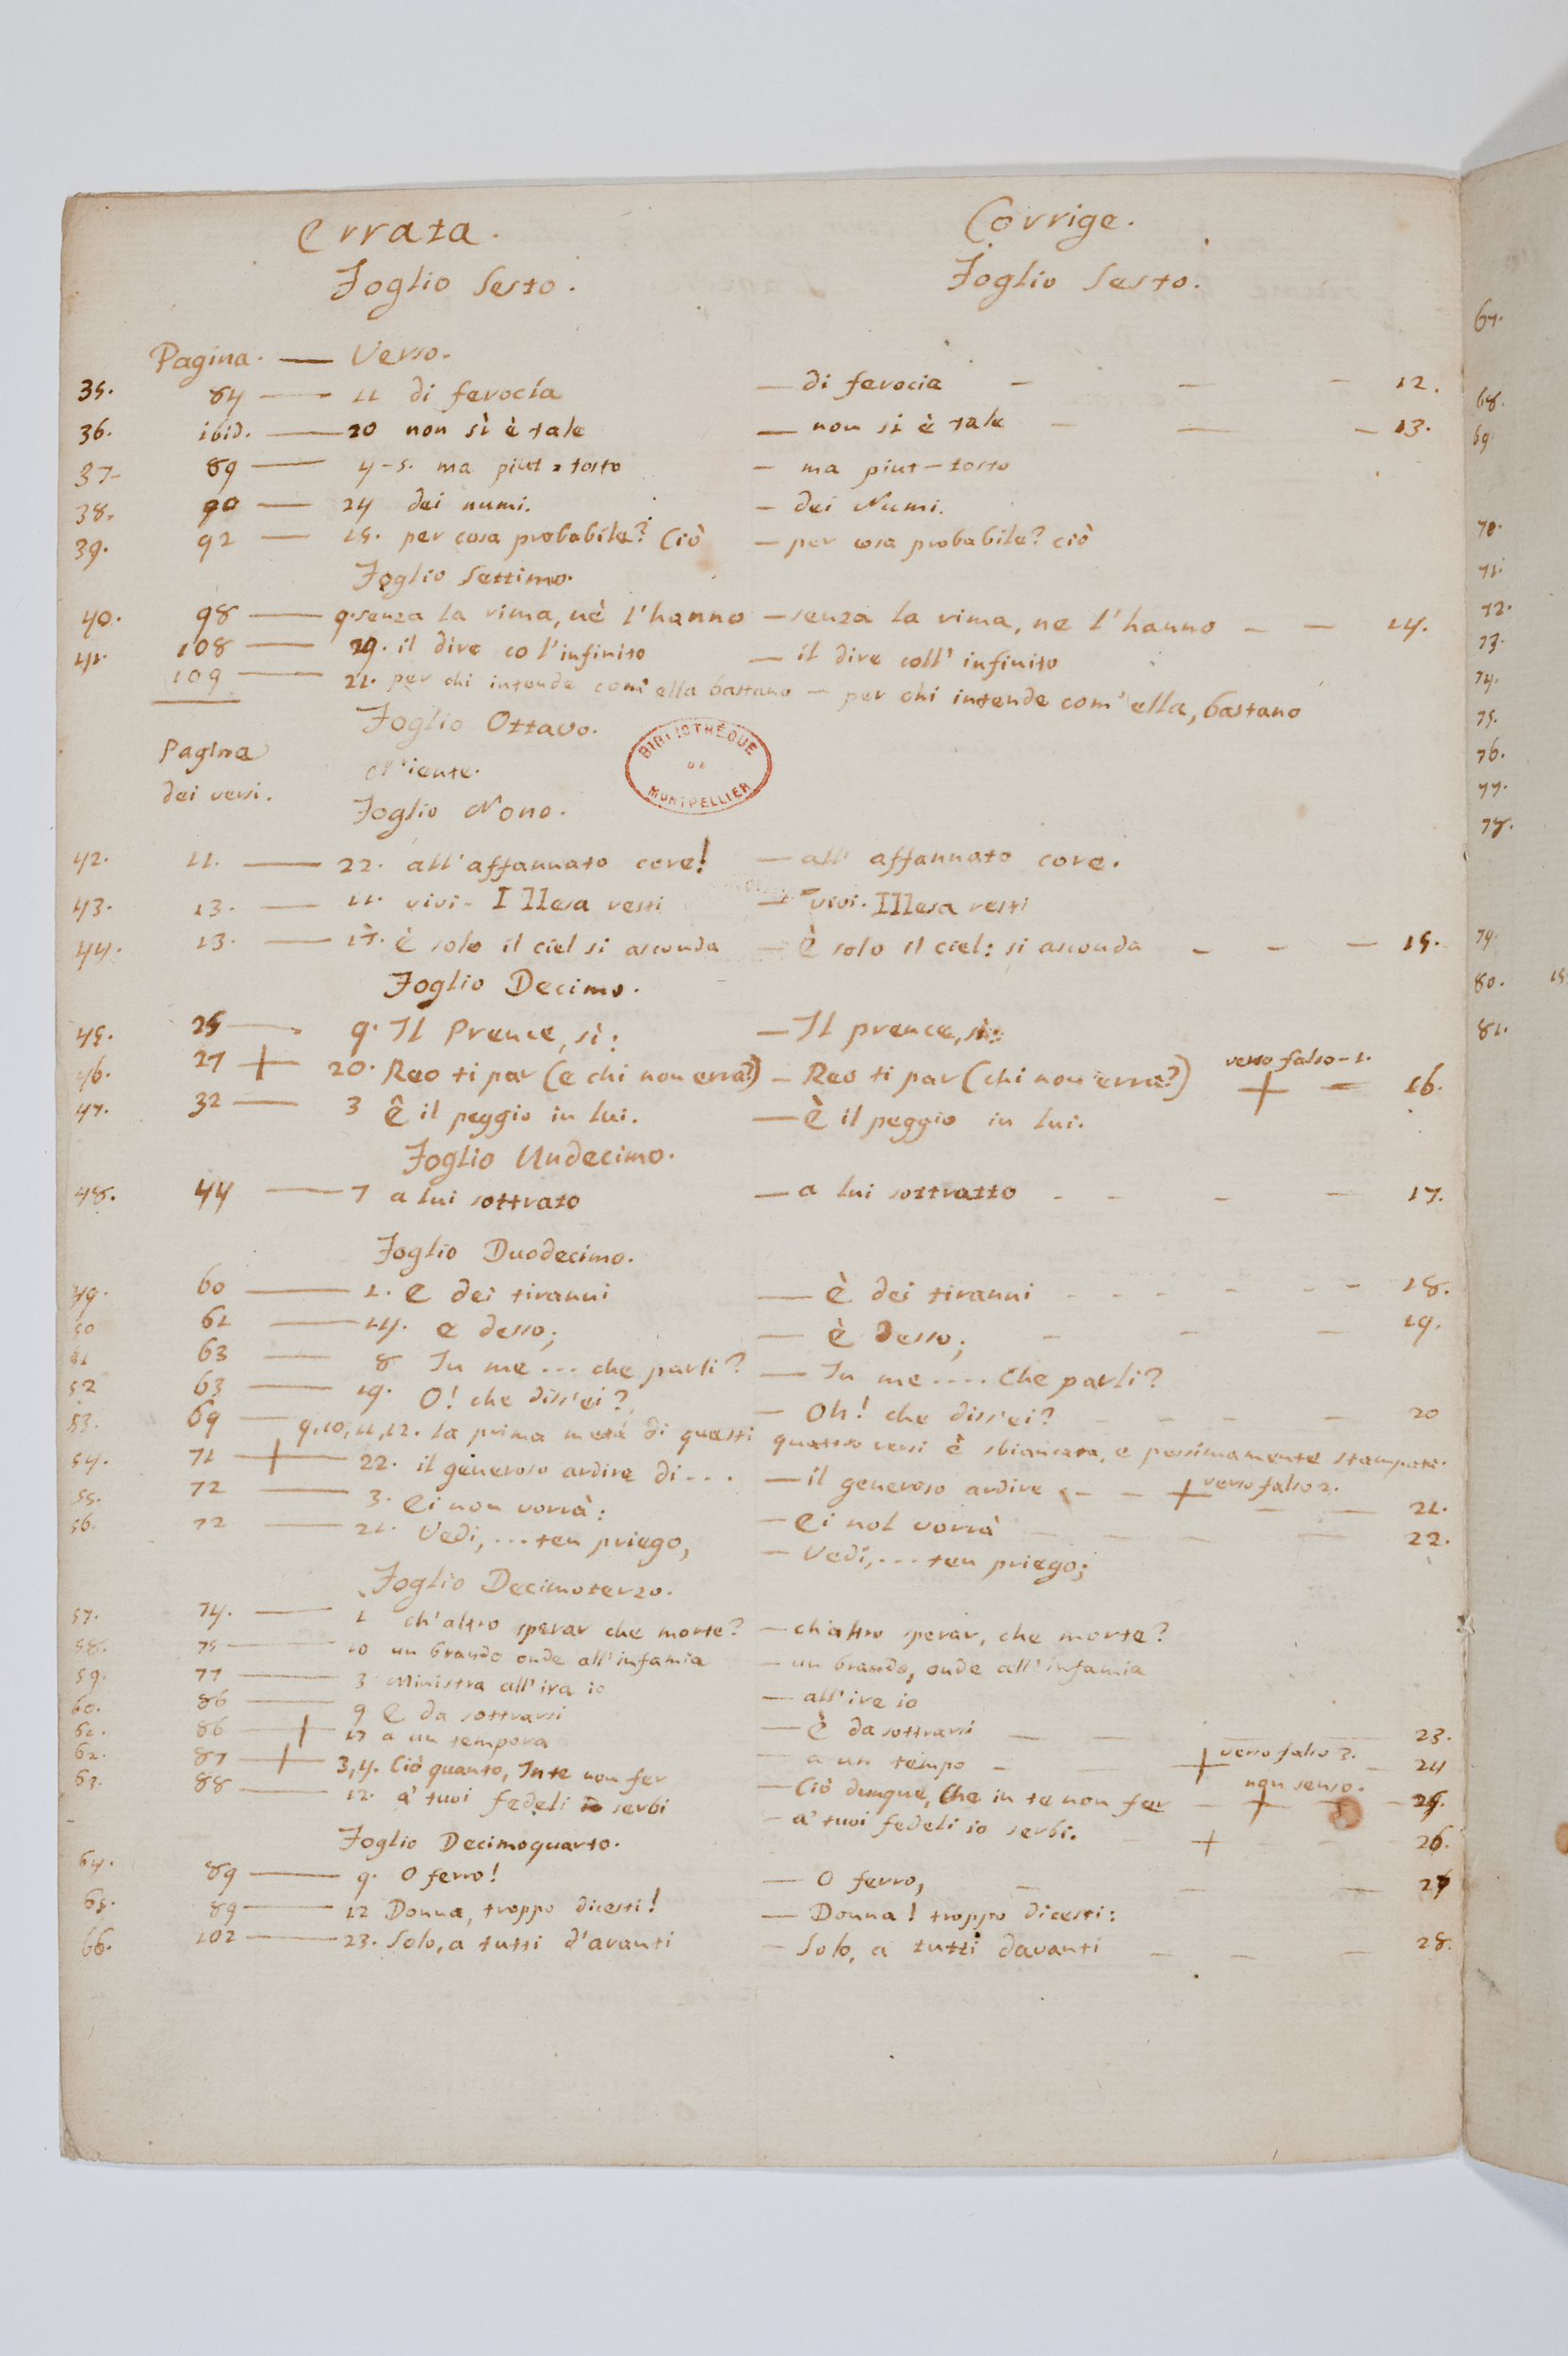 Errata. Corrige.
Foglio Sesto. Foglio Sesto.
Pagina. — Verso.
35. 84 — 11 di ferocía — di ferocia — — — 12.
36. ibid. — 20 non sì è tale — non si è tale — — — 13.
37. 89 — 4-5. ma piut=tosto — ma piut-tosto
38. 90 — 24 dei numi. — dei Numi.
39. 92 — 15. per cosa probabile? Ciò — per cosa probabile? ciò
Foglio Settimo.
40. 98 — 9. senza la rima, nè l'hanno — senza la rima, ne l'hanno — — 14.
41. 108 — 29. il dire co l'infinito — il dire coll' infinito
109 — 21. per chi intende com' ella bastano — per chi intende com' ella, bastano
Foglio Ottavo.
BIBLIOTHÈQUE DE MONTPELLIER
Pagina
dei versi.
niente.
Foglio Nono.
42. 11. — 22. all'affannato core! — all' affannato core.
43. 13. — 11. vivi- Illesa resti — vivi. Illesa resti
44. 13. — 17. è solo il ciel si asconda — È solo il ciel: si asconda — — — 15.
Foglio Decimo.
45. 25 — 9. Il Prence, sì: — Il prence, sì:
46. 27 + 20. Reo ti par (e chi non erra?) — Reo ti par (chi non erra?) verso falso-1. + — 16.
47. 32 — 3 ê il peggio in lui. — È il peggio in lui.
Foglio Undecimo.
48. 44 — 7 a lui sottrato — a lui sottratto - - - — 17.
Foglio Duodecimo.
49. 60 — 1. e dei tiranni — è dei tiranni - - - - - - 18.
50 61 — 14. e desso; — è desso; — — — 19.
51 63 — 8 In me ... che parli? — In me .... Che parli?
52 63 — 19. O! che diss'ei? — Oh! che diss'ei? — — — — 20
53. 69 — 9,10,11,12. la prima metà di questi quattro versi è sbiancata, e pessimamente stampata.
54. 71 + 22. il generoso ardire di... — il generoso ardire — — + verso falso 2.
55. 72 — 3. Ei non vorrà: — Ei nol vorrà — — — — 21.
56. 72 — 21. Vedi, ... ten priego, — Vedi, ... ten priego; 22.
Foglio Decimoterzo.
57. 74. — 1 ch'altro sperar che morte? — ch'altro sperar, che morte?
58. 75 — 10 un brando onde all'infamia — un brando, onde all'infamia
59. 77 — 3 Ministra all'ira io — all'ire io
60. 86 — 9 E da sottrarsi — È da sottrarsi — — — — 23.
61. 86 + 17 a un tempora — a un tempo — — + verso falso 3. — 24
62. 87 + 3,4. Ciò quanto, In te non fer — Ciò dunque, Che in te non fer — + non senso. — 25.
63. 88 — 12. a' tuoi fedeli io serbi — a' tuoi fedeli io serbi. — + — — 26.
Foglio Decimoquarto.
64. 89 — 9. O ferro! — O ferro, — — — 27
65. 89 — 12 Donna, troppo dicesti! — Donna! troppo dicesti:
66. 102 — 23. Solo, a tutti d'avanti — Solo, a tutti davanti — — — 28.
67.
68.
69
70.
71.
72.
73.
74.
75.
76.
77.
78.
79.
80. 15
81.